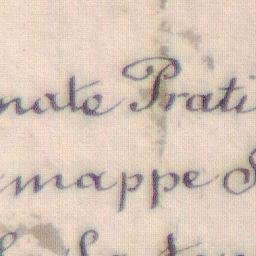 nato Prati
mappe S